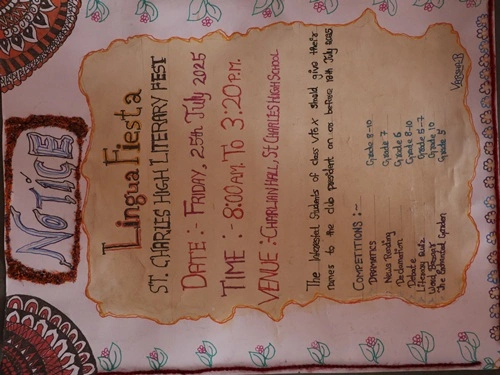 NOTICE
Lingua Fiesta
ST. CHARLES HIGH LITERARY FEST
DATE :- FRIDAY, 25th JULY 2025
TIME :- 8:00 A.M. TO 3:20 P.M.
VENUE :- CHAPLAIN HALL, ST. CHARLES HIGH SCHOOL
The Interested Students of class V to X should give their
names to the club president on or before 19th July 2025
COMPETITIONS :-
DRAMATICS Grade 8-10
News Reading Grade 7
Declamation Grade 6
Debate Grade 8-10
Literary Quiz Grade 5-7
Grade 10
The Enchanted Garden Grade 5